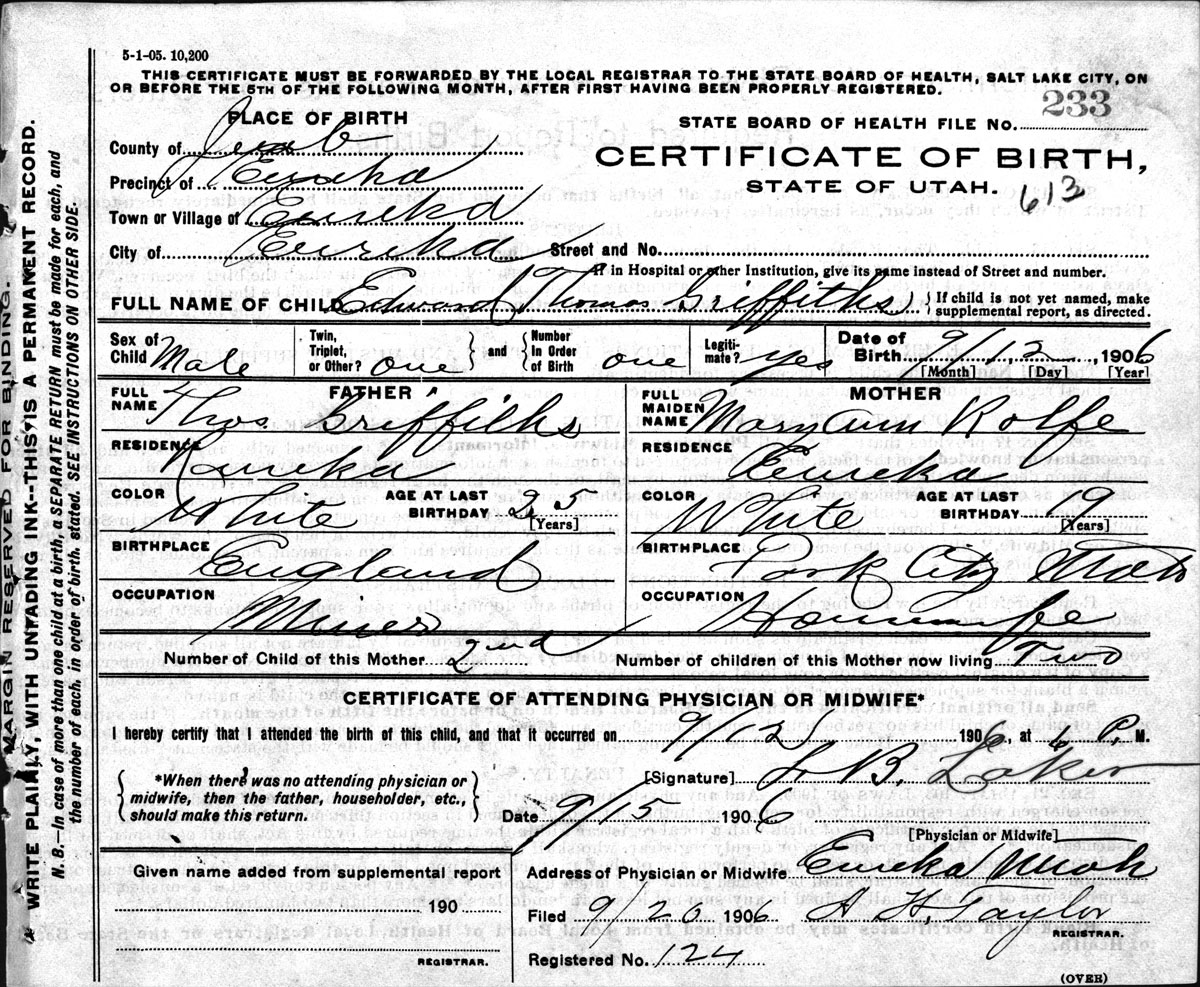 5-1-05. 10,200
THIS CERTIFICATE MUST BE FORWARDED BY THE LOCAL REGISTRAR TO THE STATE BOARD OF HEALTH, SALT LAKE CITY, ON
OR BEFORE THE 5TH OF THE FOLLOWING MONTH, AFTER FIRST HAVING BEEN PROPERLY REGISTERED.
MARGIN RESERVED FOR BINDING.
WRITE PLAINLY, WITH UNFADING INK--THIS IS A PERMANENT RECORD.
N. B.--In case of more than one child at a birth, a SEPARATE RETURN must be made for each, and
the number of each, in order of birth, stated. SEE INSTRUCTIONS ON OTHER SIDE.
PLACE OF BIRTH
County of Juab
Precinct of Eureka
Town or Village of Eureka
City of Eureka Street and No.
STATE BOARD OF HEALTH FILE No. 233
CERTIFICATE OF BIRTH,
STATE OF UTAH.
613
If in Hospital or other Institution, give its name instead of Street and number.
FULL NAME OF CHILD Edward Thomas Griffiths {If child is not yet named, make
supplemental report, as directed.
Sex of Child Male Twin, Triplet, or Other? one and Number In Order of Birth one Legiti-mate? yes Date of Birth 9/12, 1906
[Month] [Day] [Year]
FATHER
FULL NAME Thos. Griffiths
RESIDENCE Eureka
COLOR White AGE AT LAST BIRTHDAY 25
[Years]
BIRTHPLACE England
OCCUPATION Miner
MOTHER
FULL MAIDEN NAME Rolfe
RESIDENCE Eureka
COLOR White AGE AT LAST BIRTHDAY
[Years]
BIRTHPLACE Park City Utah
OCCUPATION Housewife
Number of Child of this Mother 2nd Number of children of this Mother now living Two
CERTIFICATE OF ATTENDING PHYSICIAN OR MIDWIFE*
I hereby certify that I attended the birth of this child, and that it occurred on 9/12 1906, at 6 P. M.
{*When there was no attending physician or
midwife, then the father, householder, etc.,
should make this return.}
[Signature] B.
Date 9/15 1906
[Physician or Midwife]
Given name added from supplemental report
190
REGISTRAR.
Address of Physician or Midwife Eureka Utah
Filed 9/20 1906 A. H. Taylor
REGISTRAR.
Registered No. 124
(OVER)